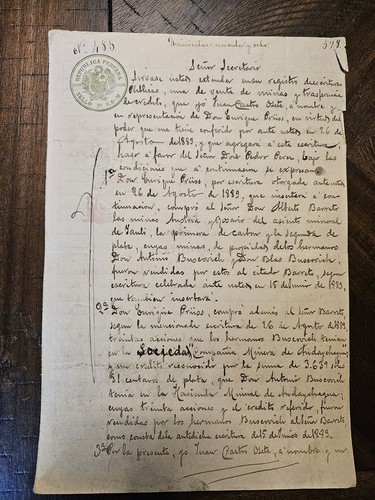 Nº 483
598.
REPUBLICA PERUANA
Señor Secretario
Sirvase usted estender en su registro de escrituras
Públicas, una de venta de minas y traspaso
de crédito, que yó Juan Castro Osete, a nombre y
en representacion de Don Enrique Prüss, en virtud del
poder que me tiene conferido por ante usted en 26 de
Agosto de 1889, y que agregará a esta escritura,
hago á favor del Señor Don Pedro Perez, bajo las
condiciones que á continuacion se expresan
1ª Don Enrique Prüss, por escritura otorgada ante usted
en 26 de Agosto de 1889, que insertará á con-
tinuacion, compró al Señor Don Alberto Barreto
las minas y Rosario del asiento mineral
de Yauli, la primera de carbon y la segunda de
plata, cuyas minas, de propiedad de los hermanos
Don Antonio Buscovich y Don Blas Buscovich,
fueron vendidas por estos al citado Barreto, segun
escritura celebrada ante usted en 15 de Junio de 1889,
que tambien insertará.
2ª Don Enrique Prüss, compró ademas al Señor Barreto,
segun la mencionada escritura de 26 de Agosto de 1889,
treinta acciones que los hermanos Buscovich tenian
en la Sociedad "Compañia Minera de Andaychagua"
y un crédito reconocido por la suma de 3.639 soles
51 centavos de plata, que Don Antonio Buscovich
tenia en la Hacienda Mineral de Andaychagua;
cuyas treinta acciones y el crédito referido, fueron
vendidas por los hermanos Buscovich al Señor Barreto,
como consta de la antedicha escritura del 15 de Junio de 1889.
3ª Por la presente, yo Juan Castro Osete, á nombre y en